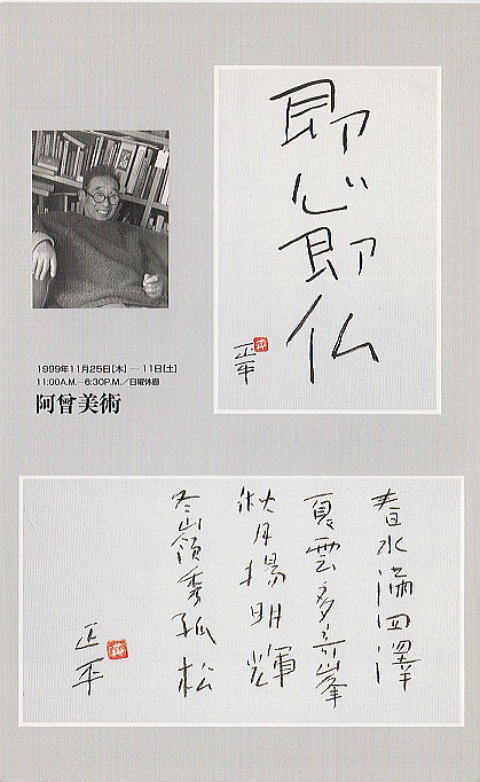 即心即仏
正平
1999年11月25日[木]―11日[土]
11:00A.M.–6:30P.M.／日曜休廊
阿曾美術
春水満四澤
夏雲多奇峯
秋月揚明輝
冬嶺秀孤松
正平